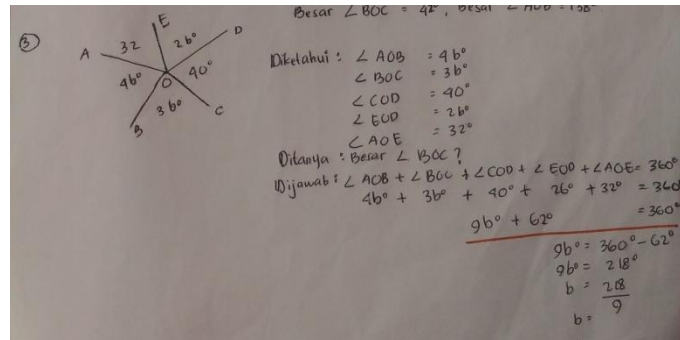 Besar ∠ BOC = 42°, besar ∠ AOD = 138°
③
E
D
A
32
2b°
4b°
O
40°
3b°
B
C
Diketahui : ∠ AOB = 4b°
∠ BOC = 3b°
∠ COD = 40°
∠ EOD = 2b°
∠ AOE = 32°
Ditanya : Besar ∠ BOC ?
Dijawab : ∠ AOB + ∠ BOC + ∠ COD + ∠ EOD + ∠ AOE = 360°
4b° + 3b° + 40° + 2b° + 32° = 360
9b° + 62° = 360°
9b° = 360° - 62°
9b° = 218°
b = 218
9
b =